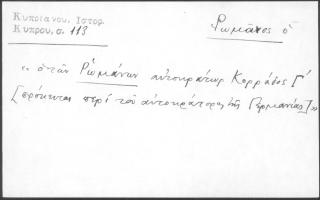 Κυπριανού, Ιστορ.
Κύπρου, σ. 113
Ῥωμᾶνος ὁ
« ὁ τῶν Ῥωμάνων αὐτοκράτωρ Κορράδος Γ´
[πρόκειται περί τοῦ αὐτοκράτορος τῆς Γερμανίας] »